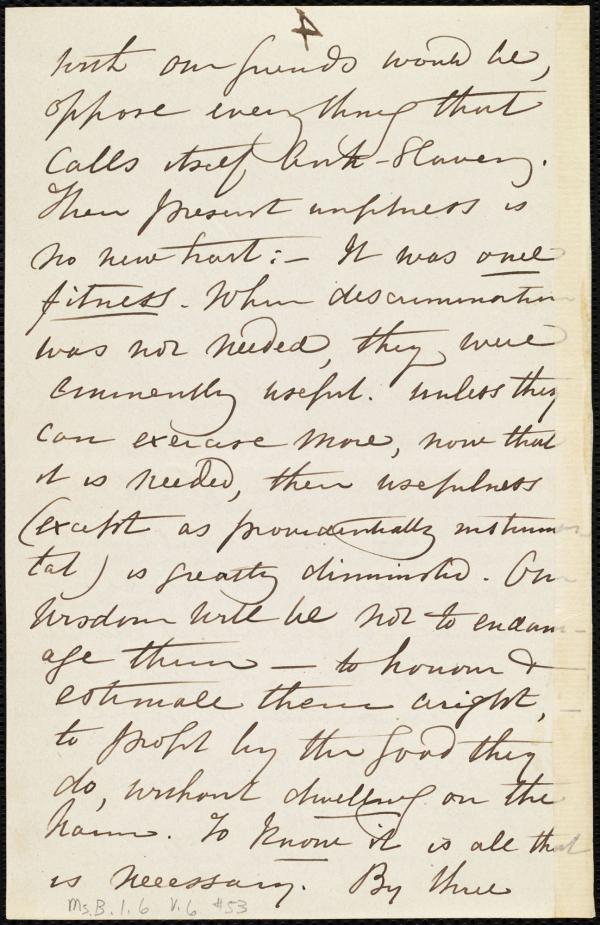 4
with our friends would be,
oppose everything that
calls itself Anti-Slavery.
Their present unfitness is
no new trait: – It was once
fitness. When discrimination
was not needed, they were
eminently useful. Unless they
can exercise more, now that
it is needed, their usefulness
(except as providentially instrumen
tal) is greatly diminished. Our
wisdom will be not to endam-
age them – to honour &
estimate them aright,
to profit by the good they
do, without dwelling on the
harm. To know it is all that
is necessary. By three
Ms.B.1.6 V.6 #53